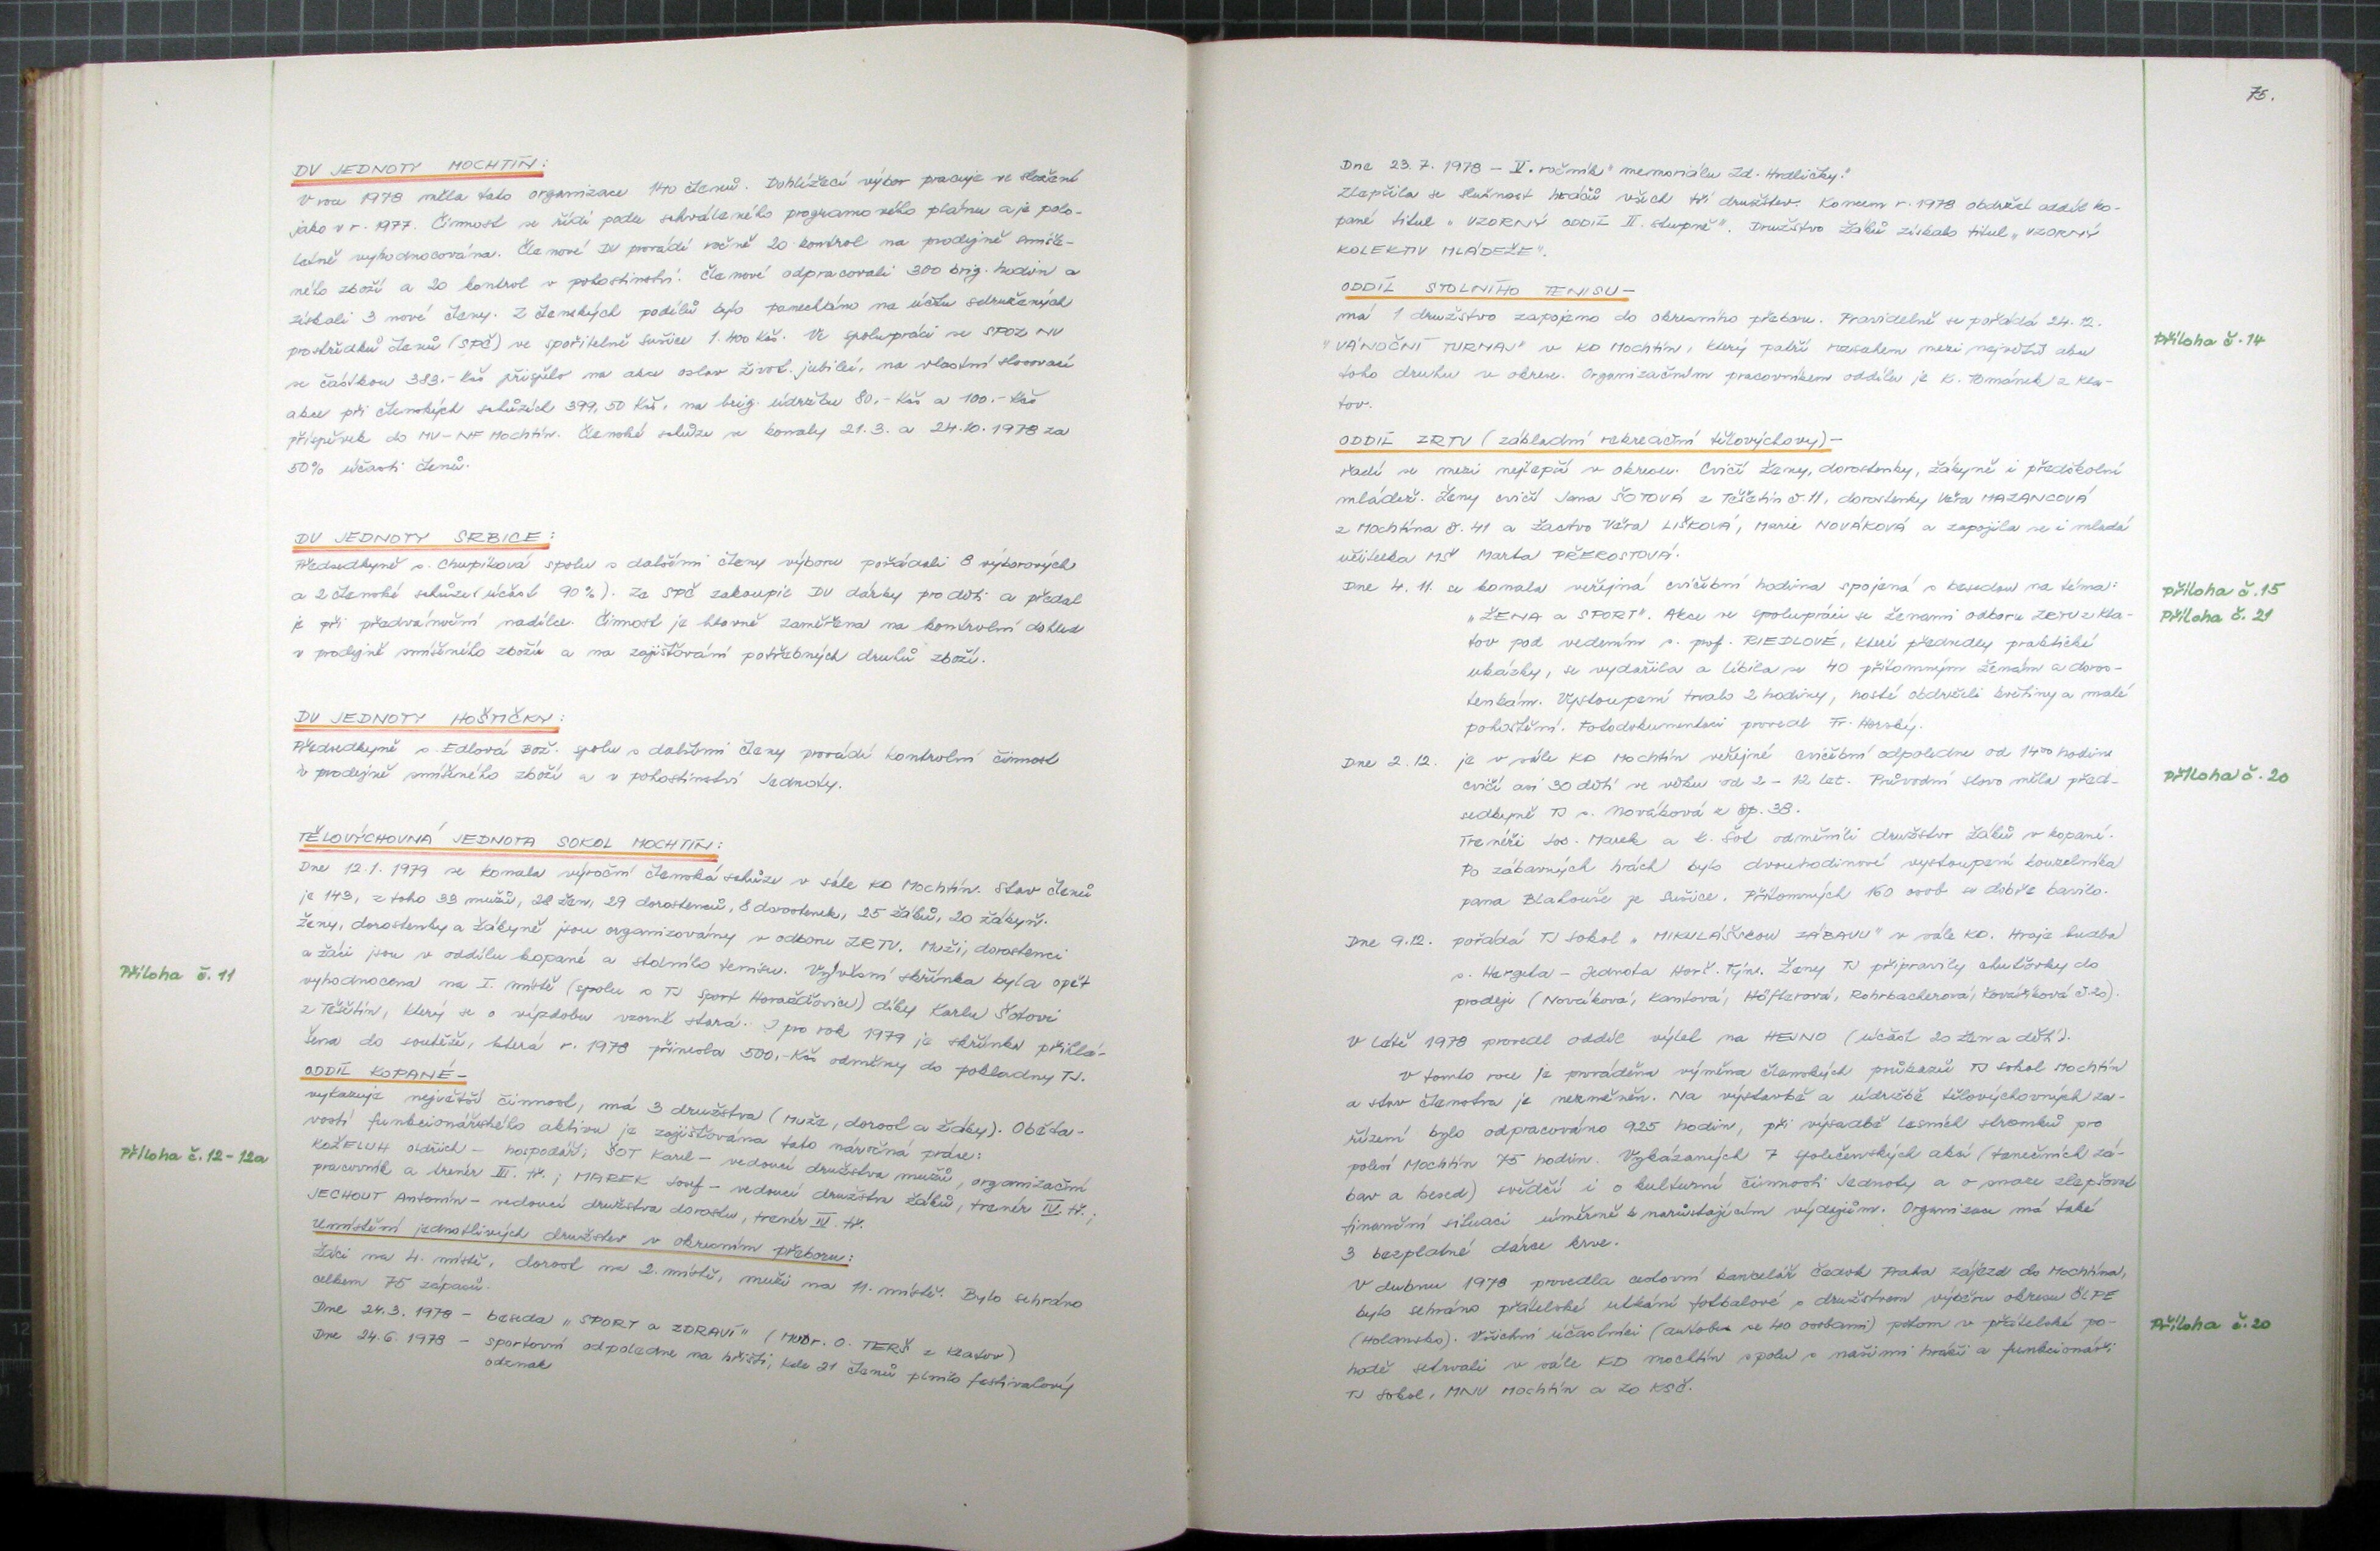 DV JEDNOTY MOCHTÍN:
V roce 1978 měla tato organizace 140 členů. Dohlížecí výbor pracuje ve složení
jako v r. 1977. Činnost se řídí podle schváleného programového plánu a je polo-
letně vyhodnocována. Členové DV provádí ročně 20 kontrol na prodejně smíše-
ného zboží a 20 kontrol v pohostinství. Členové odpracovali 300 brig. hodin a
získali 3 nové členy. Z členských podílů bylo ponecháno na účtu sdružených
prostředků členů (SPČ) ve spořitelně Sušice 1.400 Kčs. Ve spolupráci se SPOZ NV
se částkou 383,- Kčs přispělo na akce oslav život. jubileí, na vlastní slosovací
akce při členských schůzích 399,50 Kčs, na brig. údržbu 80,- Kčs a 100,- Kčs
příspěvek do MV-NF Mochtín. Členské schůze se konaly 21.3. a 24.10.1978 za
50% účasti členů.
DV JEDNOTY SRBICE:
Předsedkyně s. Chupíková spolu s dalšími členy výboru pořádali 8 výborových
a 2 členské schůze (účast 90%). Ze SPČ zakoupil DV dárky pro děti a předal
je při předvánoční nadílce. Činnost je hlavně zaměřena na kontrolní dohled
v prodejně smíšeného zboží a na zajišťování potřebných druhů zboží.
DV JEDNOTY HOŠTIČKY:
Předsedkyně s. Edlová Bož. spolu s dalšími členy provádí kontrolní činnost
v prodejně smíšeného zboží a v pohostinství Jednoty.
TĚLOVÝCHOVNÁ JEDNOTA SOKOL MOCHTÍN:
Dne 12.1.1979 se konala výroční členská schůze v sále KD Mochtín. Stav členů
je 143, z toho 33 mužů, 28 žen, 29 dorostenců, 8 dorostenek, 25 žáků, 20 žákyň.
Ženy, dorostenky a žákyně jsou organizovány v odboru ZRTV. Muži, dorostenci
a žáci jsou v oddílu kopané a stolního tenisu. Vývěsní skřínka byla opět
Příloha č. 11
vyhodnocena na I. místě (spolu s TJ Sport Horažďovice) díky Karlu Šotovi
z Těšetin, který se o výzdobu vzorně stará. I pro rok 1979 je skřínka přihlá-
šena do soutěže, která r. 1978 přinesla 500,- Kčs odměny do pokladny TJ.
ODDÍL KOPANÉ -
vykazuje největší činnost, má 3 družstva (muže, dorost a žáky). Oběta-
vostí funkcionářského aktivu je zajišťována tato náročná práce:
Příloha č. 12-12a
KOŽELUH Oldřich - hospodář; ŠOT Karel - vedoucí družstva mužů, organizační
pracovník a trenér III. tř.; MAREK Josef - vedoucí družstva žáků, trenér IV. tř.;
JECHOUT Antonín - vedoucí družstva dorostu, trenér IV. tř.
Umístění jednotlivých družstev v okresním přeboru:
Žáci na 4. místě, dorost na 2. místě, muži na 11. místě. Bylo sehráno
celkem 75 zápasů.
Dne 24.3.1978 - beseda „SPORT a ZDRAVÍ" (MUDr. O. TERŠ z Klatov)
Dne 24.6.1978 - sportovní odpoledne na hřišti, kde 21 členů plnilo festivalový
odznak
75.
Dne 23.7.1978 - V. ročník "memoriálu Zd. Hrdličky."
Zlepšila se slušnost hráčů všech tří družstev. Koncem r. 1978 obdržel oddíl ko-
pané titul „VZORNÝ ODDÍL II. stupně". Družstvo žáků získalo titul „VZORNÝ
KOLEKTIV MLÁDEŽE".
ODDÍL STOLNÍHO TENISU -
má 1 družstvo zapojeno do okresního přeboru. Pravidelně se pořádá 24.12.
"VÁNOČNÍ TURNAJ" v KD Mochtín, který patří rozsahem mezi největší akce
Příloha č. 14
toho druhu v okrese. Organizačním pracovníkem oddílu je K. Tománek z Kla-
tov.
ODDÍL ZRTV (základní rekreační tělovýchovy) -
řadí se mezi nejlepší v okrese. Cvičí ženy, dorostenky, žákyně i předškolní
mládež. Ženy cvičí Jana ŠOTOVÁ z Těšetin č. 11, dorostenky Věra MAZANCOVÁ
z Mochtína č. 41 a žactvo Věra LIŠKOVÁ, Marie NOVÁKOVÁ a zapojila se i mladá
učitelka MŠ Marta PŘEROSTOVÁ.
Dne 4.11. se konala veřejná cvičební hodina spojená s besedou na téma:
Příloha č. 15
„ŽENA a SPORT". Akce ve spolupráci se ženami odboru ZRTV z Kla-
Příloha č. 21
tov pod vedením s. prof. RIEDLOVÉ, které předvedly praktické
ukázky, se vydařila a líbila se 40 přítomným ženám a doros-
tenkám. Vystoupení trvalo 2 hodiny, hosté obdrželi květiny a malé
pohoštění. Fotodokumentaci provedl Fr. Horský.
Dne 2.12. je v sále KD Mochtín veřejné cvičební odpoledne od 14oo hodin
Příloha č. 20
cvičí asi 30 dětí ve věku od 2 - 12 let. Průvodní slovo měla před-
sedkyně TJ s. Nováková z čp. 38.
Trenéři Jos. Marek a K. Šot odměnili družstvo žáků v kopané.
Po zábavných hrách bylo dvouhodinové vystoupení kouzelníka
pana Blahouše ze Sušice. Přítomných 160 osob se dobře bavilo.
Dne 9.12. pořádá TJ Sokol „MIKULÁŠSKOU ZÁBAVU" v sále KD. Hraje hudba
s. Hergeta - Jednota Horš. Týn. Ženy TJ připravily chuťovky do
prodeje (Nováková, Kantová, Höflerová, Rohrbacherová, Kovaříková č. 20).
V létě 1978 provedl oddíl výlet na HEJNO (účast 20 žen a dětí).
V tomto roce je prováděna výměna členských průkazů TJ Sokol Mochtín
a stav členstva je nezměněn. Na výstavbě a údržbě tělovýchovných za-
řízení bylo odpracováno 925 hodin, při výsadbě lesních stromků pro
polesí Mochtín 75 hodin. Vykázaných 7 společenských akcí (tanečních zá-
bav a besed) svědčí i o kulturní činnosti Jednoty a o snaze zlepšovat
finanční situaci úměrně k narůstajícím výdajům. Organizace má také
3 bezplatné dárce krve.
V dubnu 1978 provedla cestovní kancelář Čedok Praha zájezd do Mochtína,
bylo sehráno přátelské utkání fotbalové s družstvem výběru okresu ÖLPE
Příloha č. 20
(Holansko). Všichni účastníci (autobus se 40 osobami) potom v přátelské po-
hodě setrvali v sále KD Mochtín spolu s našimi hráči a funkcionáři
TJ Sokol, MNV Mochtín a ZO KSČ.